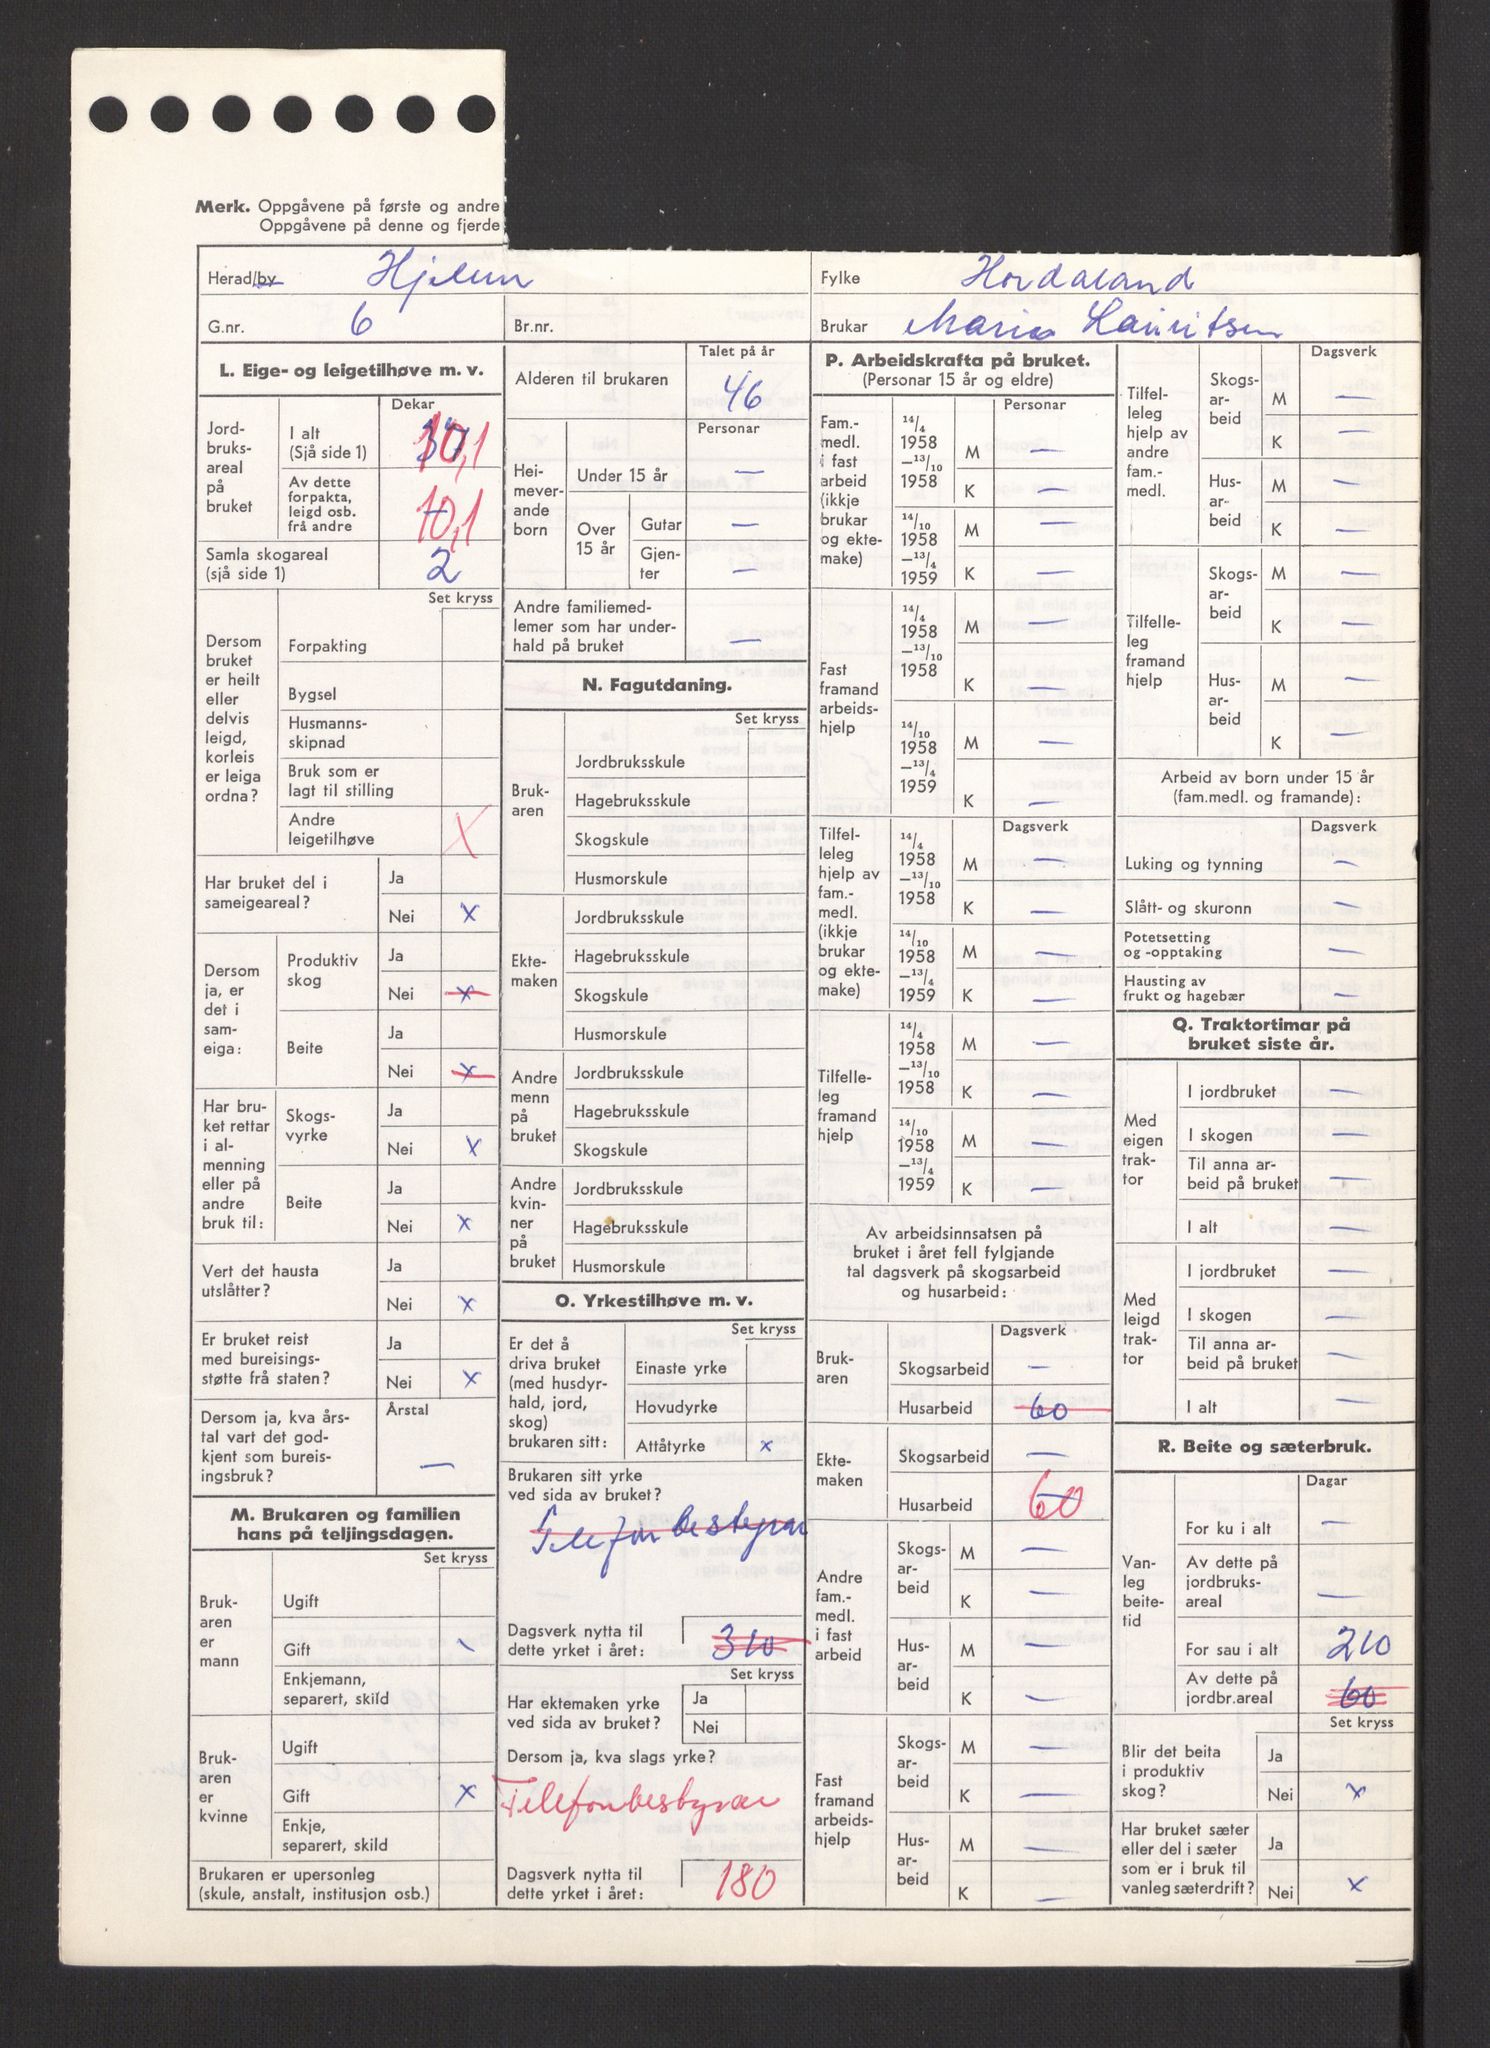 Merk. Oppgåvene på første og andre
Oppgåvene på denne og fjerde
Herad/by Hjelm
Fylke Hordaland
G.nr. 6
Br.nr.
Brukar Maria Lauritsen
L. Eige- og leigetilhøve m. v.
Dekar
Jord-
bruks-
areal
på
bruket
I alt
(Sjå side 1)
10,1
Av dette
forpakta,
leigd osb.
frå andre
10,1
Samla skogareal
(sjå side 1)
2
Set kryss
Dersom
bruket
er heilt
eller
delvis
leigd,
korleis
er leiga
ordna?
Forpakting
Bygsel
Husmanns-
skipnad
Bruk som er
lagt til stilling
Andre
leigetilhøve
X
Har bruket del i
sameigeareal?
Ja
Nei x
Dersom
ja, er
det i
sam-
eiga:
Produktiv
skog
Ja
Nei x
Beite
Ja
Nei x
Har bru-
ket rettar
i al-
menning
eller på
andre
bruk til:
Skogs-
vyrke
Ja
Nei x
Beite
Ja
Nei x
Vert det hausta
utslåtter?
Ja
Nei x
Er bruket reist
med bureisings-
støtte frå staten?
Ja
Nei x
Dersom ja, kva års-
tal vart det god-
kjent som bureis-
ingsbruk?
Årstal
—
M. Brukaren og familien
hans på teljingsdagen.
Set kryss
Bruk-
aren
er
mann
Ugift
Gift
Enkjemann,
separert, skild
Bruk-
aren
er
kvinne
Ugift
Gift x
Enkje,
separert, skild
Brukaren er upersonleg
(skule, anstalt, institusjon osb.)
Talet på år
Alderen til brukaren 46
Personar
Hei-
mever-
ande
born
Under 15 år —
Over
15 år
Gutar —
Gjen-
ter —
Andre familiemed-
lemer som har under-
hald på bruket —
N. Fagutdaning.
Set kryss
Bruk-
aren
Jordbruksskule
Hagebruksskule
Skogskule
Husmorskule
Ekte-
maken
Jordbruksskule
Hagebruksskule
Skogskule
Husmorskule
Andre
menn
på
bruket
Jordbruksskule
Hagebruksskule
Skogskule
Andre
kvin-
ner
på
bruket
Jordbruksskule
Hagebruksskule
Husmorskule
O. Yrkestilhøve m. v.
Set kryss
Er det å
driva bruket
(med husdyr-
hald, jord,
skog)
brukaren sitt:
Einaste yrke
Hovudyrke
Attåtyrke x
Brukaren sitt yrke
ved sida av bruket?
Telefonbestyrar
Dagsverk nytta til
dette yrket i året: 310
Set kryss
Har ektemaken yrke
ved sida av bruket?
Ja
Nei
Dersom ja, kva slags yrke?
Telefonbestyrar
Dagsverk nytta til
dette yrket i året: 180
P. Arbeidskrafta på bruket.
(Personar 15 år og eldre)
Personar
Fam.-
medl.
i fast
arbeid
(ikkje
brukar
og ekte-
make)
14/4
1958
—13/10
1958
M —
K —
14/10
1958
—13/4
1959
M —
K —
Fast
framand
arbeids-
hjelp
14/4
1958
—13/10
1958
M —
K —
14/10
1958
—13/4
1959
M —
K —
Dagsverk
Tilfel-
leleg
hjelp av
fam.-
medl.
(ikkje
brukar
og ekte-
make)
14/4
1958
—13/10
1958
M —
K —
14/10
1958
—13/4
1959
M —
K —
Tilfelle-
leg
framand
hjelp
14/4
1958
—13/10
1958
M —
K —
14/10
1958
—13/4
1959
M —
K —
Av arbeidsinnsatsen på
bruket i året fell fylgjande
tal dagsverk på skogsarbeid
og husarbeid:
Dagsverk
Bruk-
aren
Skogsarbeid —
Husarbeid 60
Ekte-
maken
Skogsarbeid —
Husarbeid 60
Andre
fam.-
medl.
i fast
arbeid
Skogs-
ar-
beid
M —
K —
Hus-
ar-
beid
M —
K —
Fast
framand
arbeids-
hjelp
Skogs-
ar-
beid
M —
K —
Hus-
ar-
beid
M —
K —
Dagsverk
Tilfel-
leleg
hjelp av
andre
fam.-
medl.
Skogs-
ar-
beid
M —
K —
Hus-
ar-
beid
M —
K —
Tilfelle-
leg
framand
hjelp
Skogs-
ar-
beid
M —
K —
Hus-
ar-
beid
M —
K —
Arbeid av born under 15 år
(fam.medl. og framande):
Dagsverk
Luking og tynning —
Slått- og skuronn —
Potetsetting
og -opptaking —
Hausting av
frukt og hagebær —
Q. Traktortimar på
bruket siste år.
Med
eigen
trak-
tor
I jordbruket —
I skogen —
Til anna ar-
beid på bruket —
I alt —
Med
leigd
trak-
tor
I jordbruket —
I skogen —
Til anna ar-
beid på bruket —
I alt —
R. Beite og sæterbruk.
Dagar
Van-
leg
beite-
tid
For ku i alt —
Av dette på
jordbruks-
areal —
For sau i alt 210
Av dette på
jordbr.areal 60
Set kryss
Blir det beita
i produktiv
skog?
Ja
Nei x
Har bruket sæter
eller del i sæter
som er i bruk til
vanleg sæterdrift?
Ja
Nei x